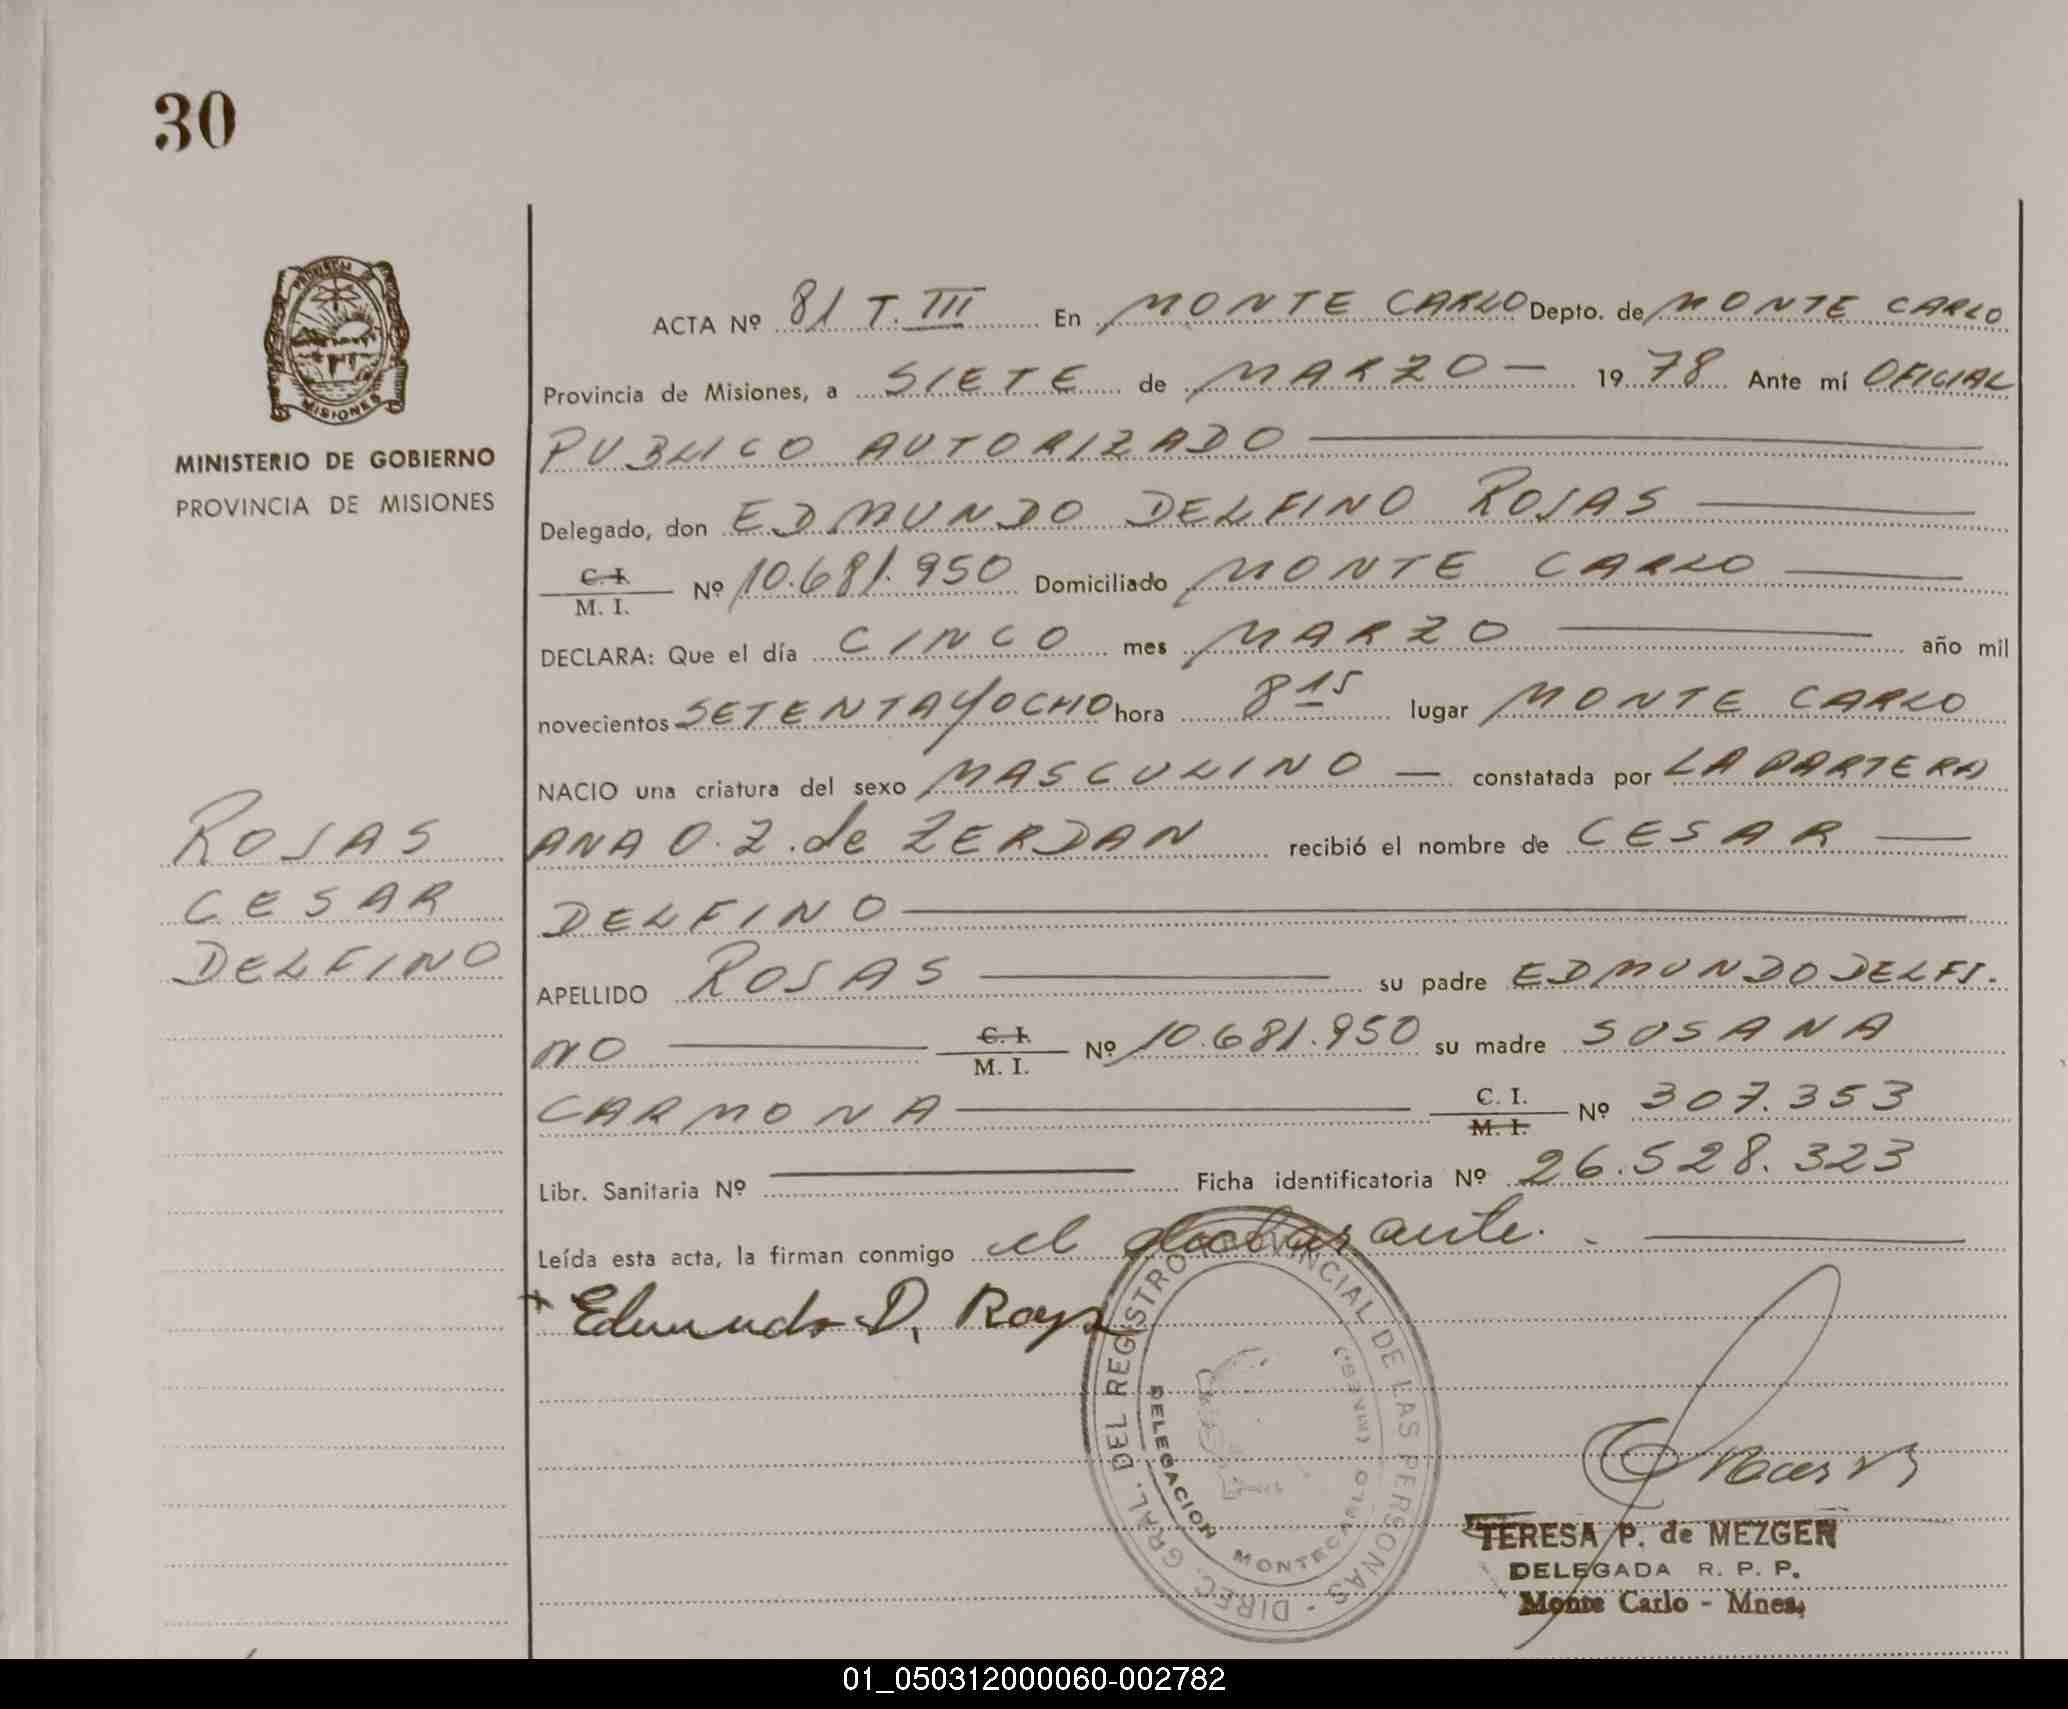 30
PROVINCIA
MISIONES
MINISTERIO DE GOBIERNO
PROVINCIA DE MISIONES
ROJAS
CESAR
DELFINO
ACTA Nº 81 T. III En MONTE CARLO Depto. de MONTE CARLO
Provincia de Misiones, a SIETE de MARZO — 19 78 Ante mí OFICIAL
PUBLICO AUTORIZADO
Delegado, don EDMUNDO DELFINO ROJAS
C. I.
M. I. Nº 10.681.950 Domiciliado MONTE CARLO
DECLARA: Que el día CINCO mes MARZO año mil
novecientos SETENTA Y OCHO hora 8 15 lugar MONTE CARLO
NACIO una criatura del sexo MASCULINO — constatada por LA PARTERA
ANA O. Z. de ZERDAN recibió el nombre de CESAR
DELFINO
APELLIDO ROJAS su padre EDMUNDO DELFI-
NO C. I.
M. I. Nº 10.681.950 su madre SOSANA
CARMONA C. I.
M. I. Nº 307.353
Libr. Sanitaria Nº Ficha identificatoria Nº 26.528.323
Leída esta acta, la firman conmigo el declarante.
Edmundo D. Rojas
DIREC. GRAL. DEL REGISTRO PROVINCIAL DE LAS PERSONAS -
DELEGACION MONTECARLO (MNES)
TERESA P. de MEZGER
DELEGADA R. P. P.
Monte Carlo - Mnes.
01_050312000060-002782